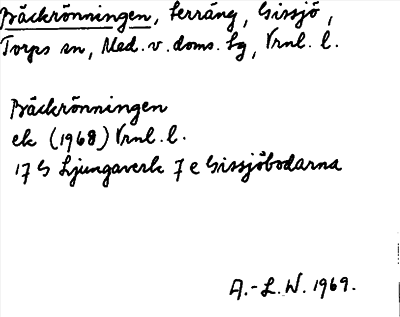 Bäckrönningen, terräng, Gissjö,
Torps sn, Med. v. doms. sg, Vrnl. l.
Bäckrönningen
ek (1968) Vrnl. l.
17 G Ljungaverk 7 e Gissjöbodarna
A.-L. W. 1969.